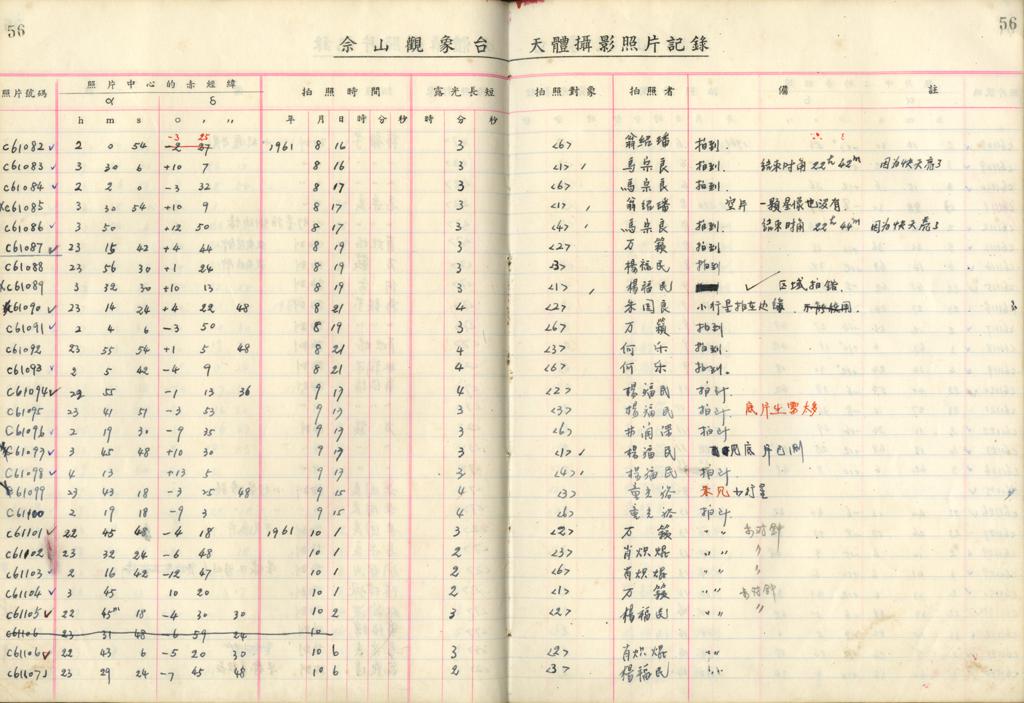 56
56
佘山觀象台 天體攝影照片記錄
照片號碼 照片中心的赤經緯 拍照時間 露光長短 拍照對象 拍照者 備 註
α δ
h m s ° ′ ″ 年 月 日 時 分 秒 時 分 秒
-3 25
c61082 2 0 54 -2 27 1961 8 16 3 <6> 翁紹璠 拍到.
c61083 3 30 6 +10 7 8 16 3 <1> 馬杲良 拍到. 結束时角 22h 42m 因为快天亮了
c61084 2 2 0 -3 32 8 17 3 <6> 馬杲良 拍到.
xc61085 3 30 54 +10 9 8 17 3 <1> 翁紹璠 空片 一顆星像也没有.
c61086 3 50 +12 50 8 17 3 <4> 馬杲良 拍到. 結束时角 22h 44m 因为快天亮了
c61087 23 15 42 +4 44 8 19 3 <2> 万籟 拍到
c61088 23 56 30 +1 24 8 19 3 <3> 楊福民 拍到
xc61089 3 32 30 +10 13 8 19 3 <1> 楊福民 区域拍錯.
c61090 23 14 24 +4 22 48 8 21 4 <2> 朱国良 小行星拍在边缘.
c61091 2 4 6 -3 50 8 19 3 <6> 万籟 拍到
c61092 23 55 54 +1 5 48 8 21 4 <3> 何乐 拍到.
c61093 2 5 42 -4 9 8 21 4 <6> 何乐 拍到.
c61094 22 55 -1 13 36 9 13 4 <2> 楊福民 拍到
c61095 23 41 51 -3 53 9 13 3 <3> 楊福民 拍到. 底片生雾太多
c61096 2 19 30 -9 35 9 13 3 <6> 拍到
c61097 3 45 48 +10 30 9 13 3 <1> 楊福民 底片已
c61098 4 13 +13 5 9 13 3 <4> 楊福民 拍到
c61099 23 43 18 -3 25 48 9 15 4 <3> 未见小行星
c61100 2 19 18 -9 3 9 15 4 <6> 拍到.
c61101 22 45 48 -4 18 1961 10 1 3 <2> 万籟 〃 〃
c61102 23 32 24 -6 48 10 1 2 <3> 肖炽焜 〃 〃 〃
c61103 2 16 42 -12 47 10 1 2 <6> 肖炽焜 〃 〃 〃
c61104 3 45 10 20 10 1 2 <1> 万籟
c61105 22 45m 18 -4 30 30 10 2 3 <2> 楊福民 〃 〃 〃
c61106 23 31 48 -6 59 24 10
c61106 22 43 6 -5 20 30 10 6 3 <2> 肖炽焜 〃 〃
c61107 23 29 24 -7 45 48 10 6 2 <3> 楊福民 〃 〃